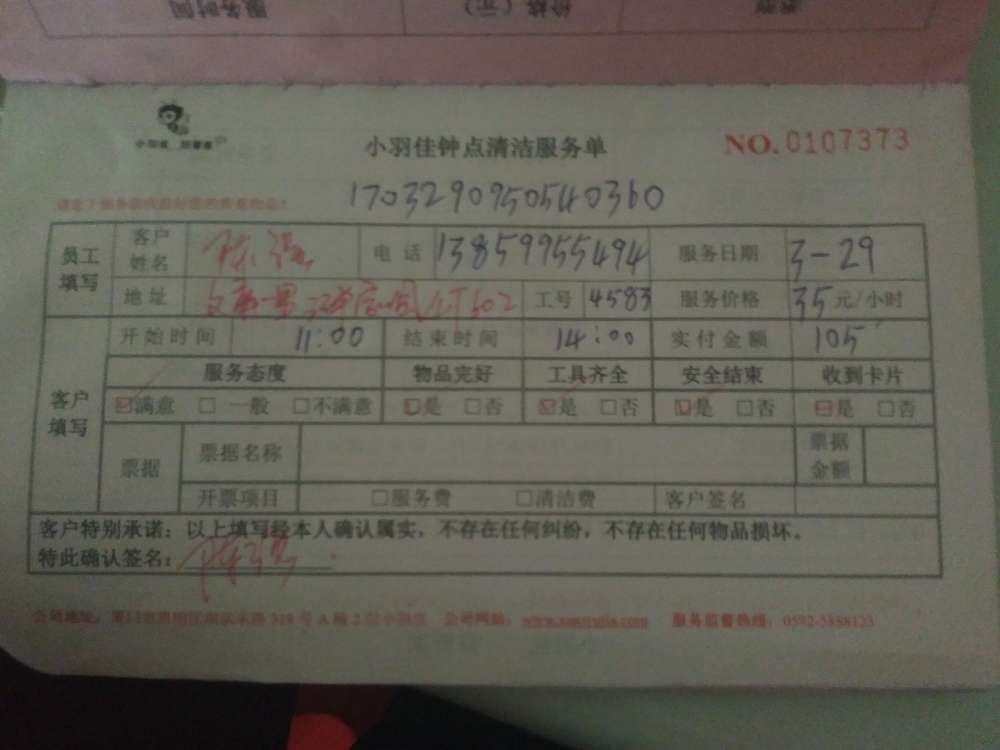 服务时间 价格（元） 类型
小羽佳钟点清洁服务单 NO. 0107373
1703290950540360
员工填写 客户姓名 陈强 电话 13859955494 服务日期 3-29
地址 602 工号 4583 服务价格 35 元/小时
客户填写 开始时间 11:00 结束时间 14:00 实付金额 105
服务态度 物品完好 工具齐全 安全结束 收到卡片
☑满意 □一般 □不满意 ☑是 □否 ☑是 □否 ☑是 □否 ☑是 □否
票据 票据名称 票据金额
开票项目 □服务费 □清洁费 客户签名
客户特别承诺：以上填写经本人确认属实，不存在任何纠纷，不存在任何物品损坏。
特此确认签名：陈强
公司地址： 319号A幢2 公司网址： 服务监督热线：0592-5888123